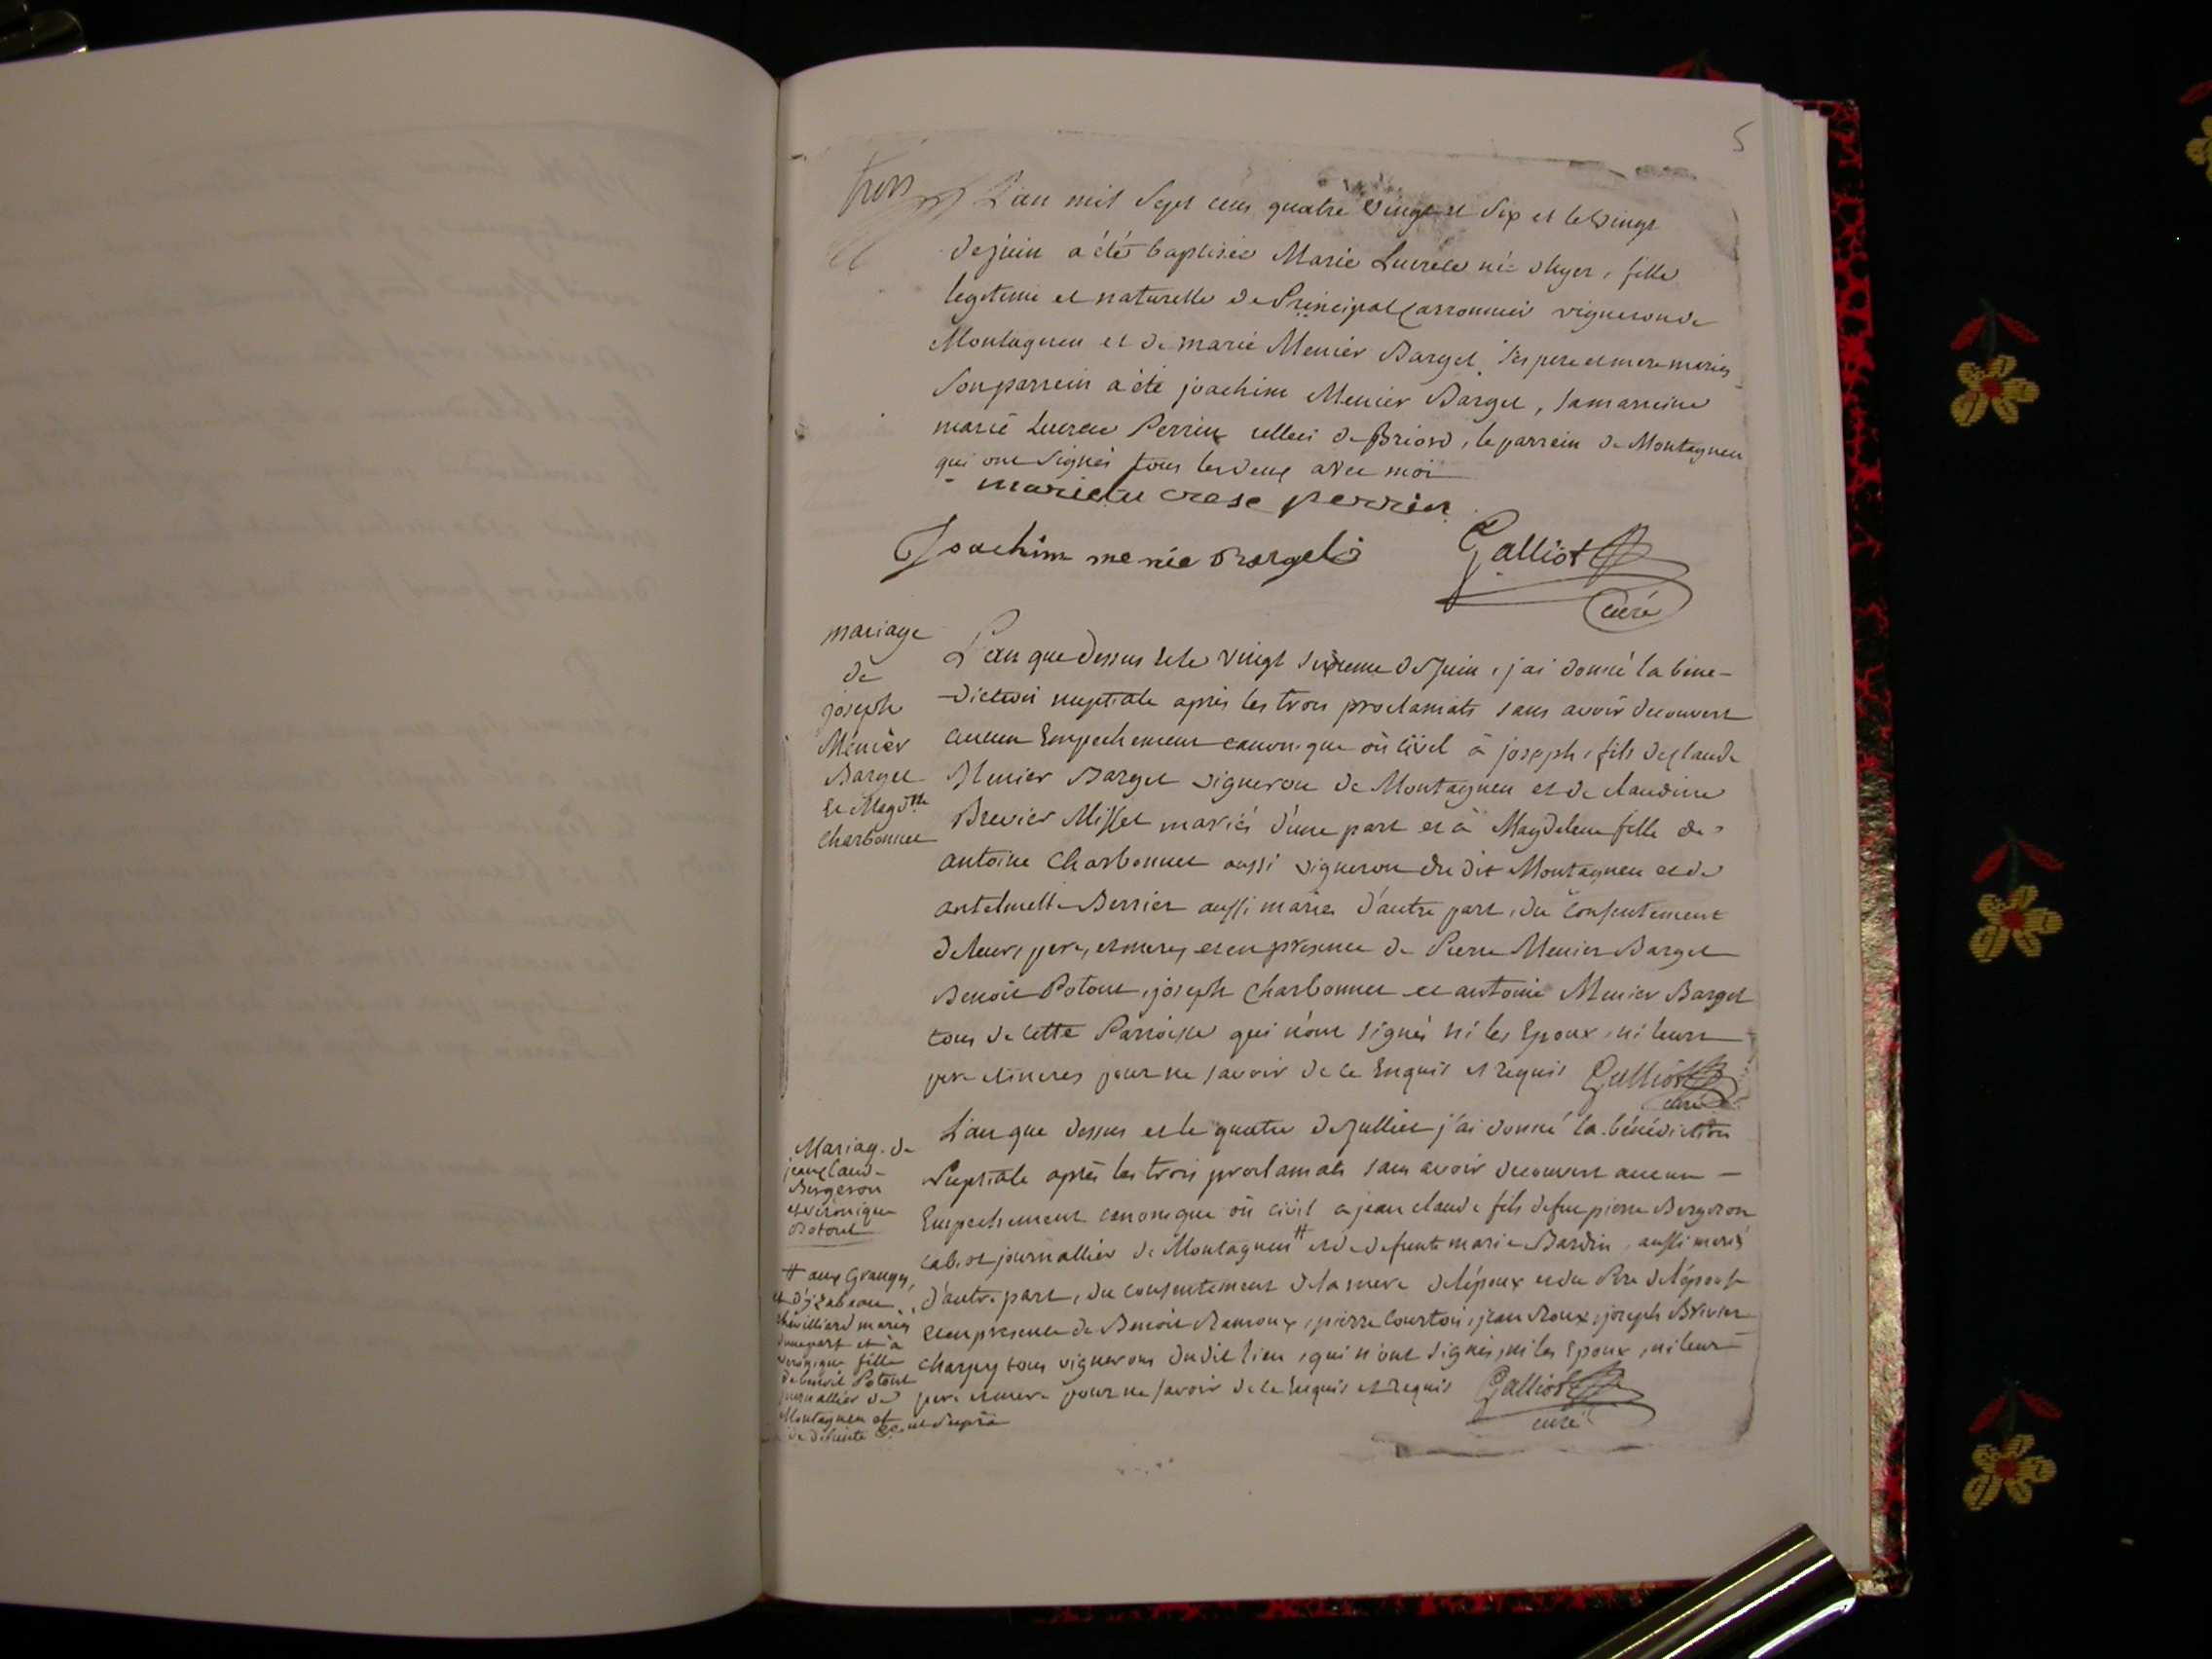 5
trois
L'an mil sept cens quatre vingt et six et le vingt
de juin a été baptisée Marie Lucrèce née d'hyer, fille
legitime et naturelle de Principal Carronnier vigneron de
Montagneu et de marie Menier Barget ses pere et mere mariés
son parrein a été joachim Menier Barget, sa marreine
marie Lucrece Perrin celleci de Briord, le parrein de Montagneu
qui ont signés tous les deux avec moi
marie lu crese perrin
Joachim menie Barget
Galliot
curé
mariage
de
joseph
Menier
Barget
et Magd.ne
Charbonnet
L'an que dessus et le vingt sixieme de Juin, j'ai donné la bene-
diction nuptiale après les trois proclamats sans avoir decouvert
aucun Empechement canonique où civil à joseph, fils de claude
Menier Barget vigneron de Montagneu et de claudine
Brevier Misset mariés d'une part et à Magdelene fille de
antoine Charbonnet aussi vigneron du dit Montagneu et de
antelmette Berrier aussi mariés d'autre part, du consentement
de leurs peres et meres, et en presence de Pierre Menier Barget
Benoit Potout, joseph Charbonnet et antoine Menier Barget
tous de cette Parroisse qui n'ont signés ni les Epoux, ni leurs
pere et meres pour ne savoir de ce Enquis et requis Galliot
curé
Mariag. de
jean Claude
Bergeron
et véronique
Potout
L'an que dessus et le quatre de Jullliet j'ai donné la bénédiction
Nuptiale après les trois proclamats sans avoir decouvert aucun
Empechement canonique où civil a jean claude fils de feu pierre Bergeron
journallier de Montagneu # et de defunte marie Bardin aussi mariés
d'autre part, du consentement de la mere de l'époux et du Pere de l'épouse
et en presence de Benoit Ramoux, pierre Courtois, jean Roux, joseph Brevier
Charpy tous vignerons du dit lieu, qui n'ont signés, ni les Epoux, ni leur
pere et mere pour ne savoir de ce Enquis et requis Galliot
curé
# aux Granges,
et d'izabeau
chevilliard mariés
d'une part et à
veronique fille
de benoit Potout
journallier de
Montagneu et
de defunte &c. ut supra